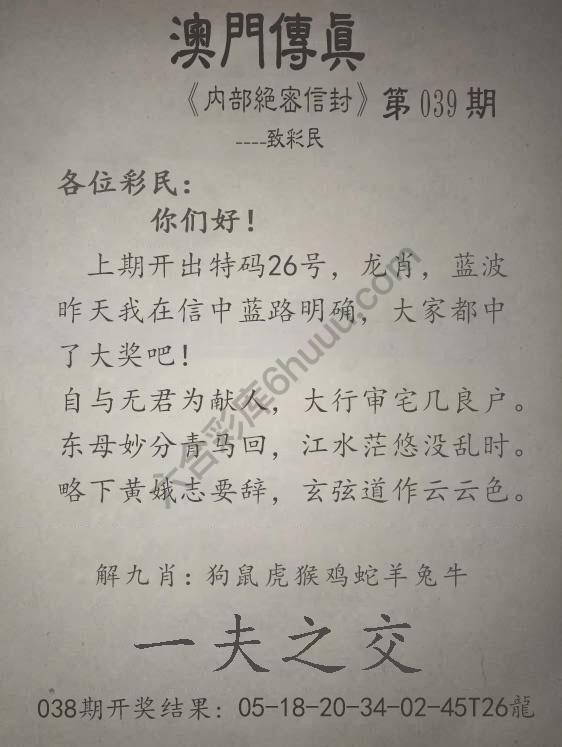 澳門傳眞
《内部絕密信封》第039期
----致彩民
各位彩民：
你们好！
上期开出特码26号，龙肖，蓝波
昨天我在信中蓝路明确，大家都中
了大奖吧！
自与无君为献人，大行审宅几良户。
东母妙分青马回，江水茫悠没乱时。
略下黄娥志要辞，玄弦道作云云色。
解九肖：狗鼠虎猴鸡蛇羊兔牛
一夫之交
038期开奖结果：05-18-20-34-02-45T26龍
六合彩库6huuu.com